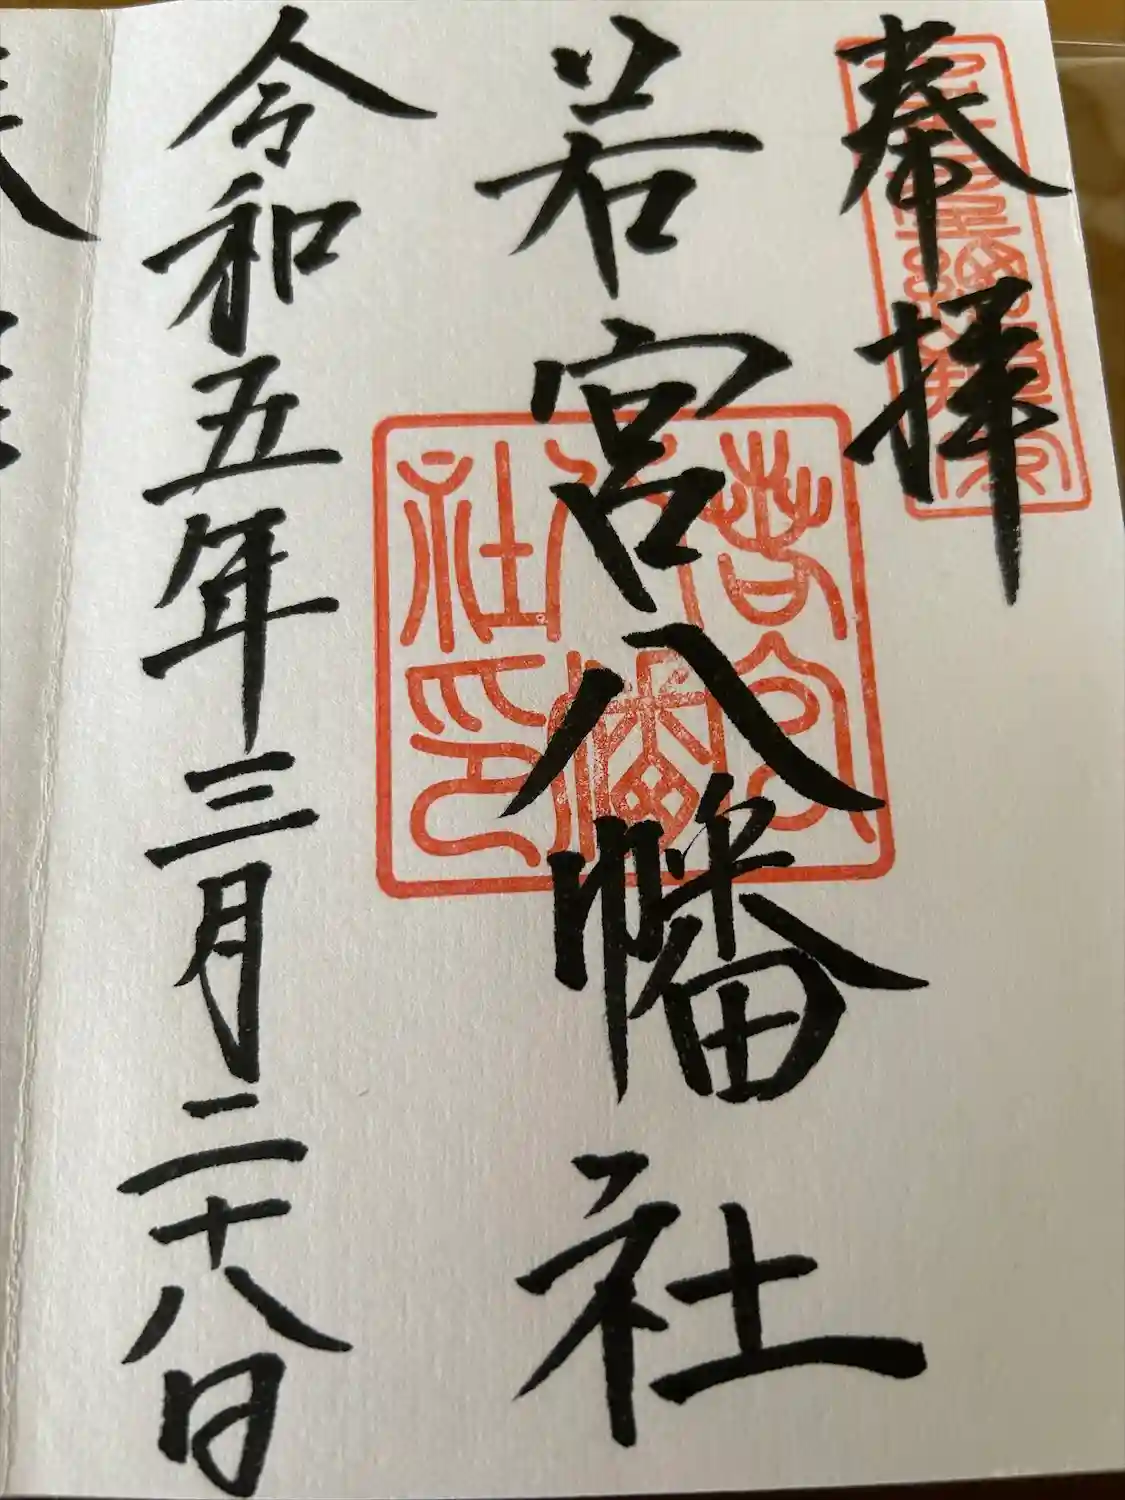 奉拝
若宮八幡社
令和五年三月二十八日
若宮八幡社印